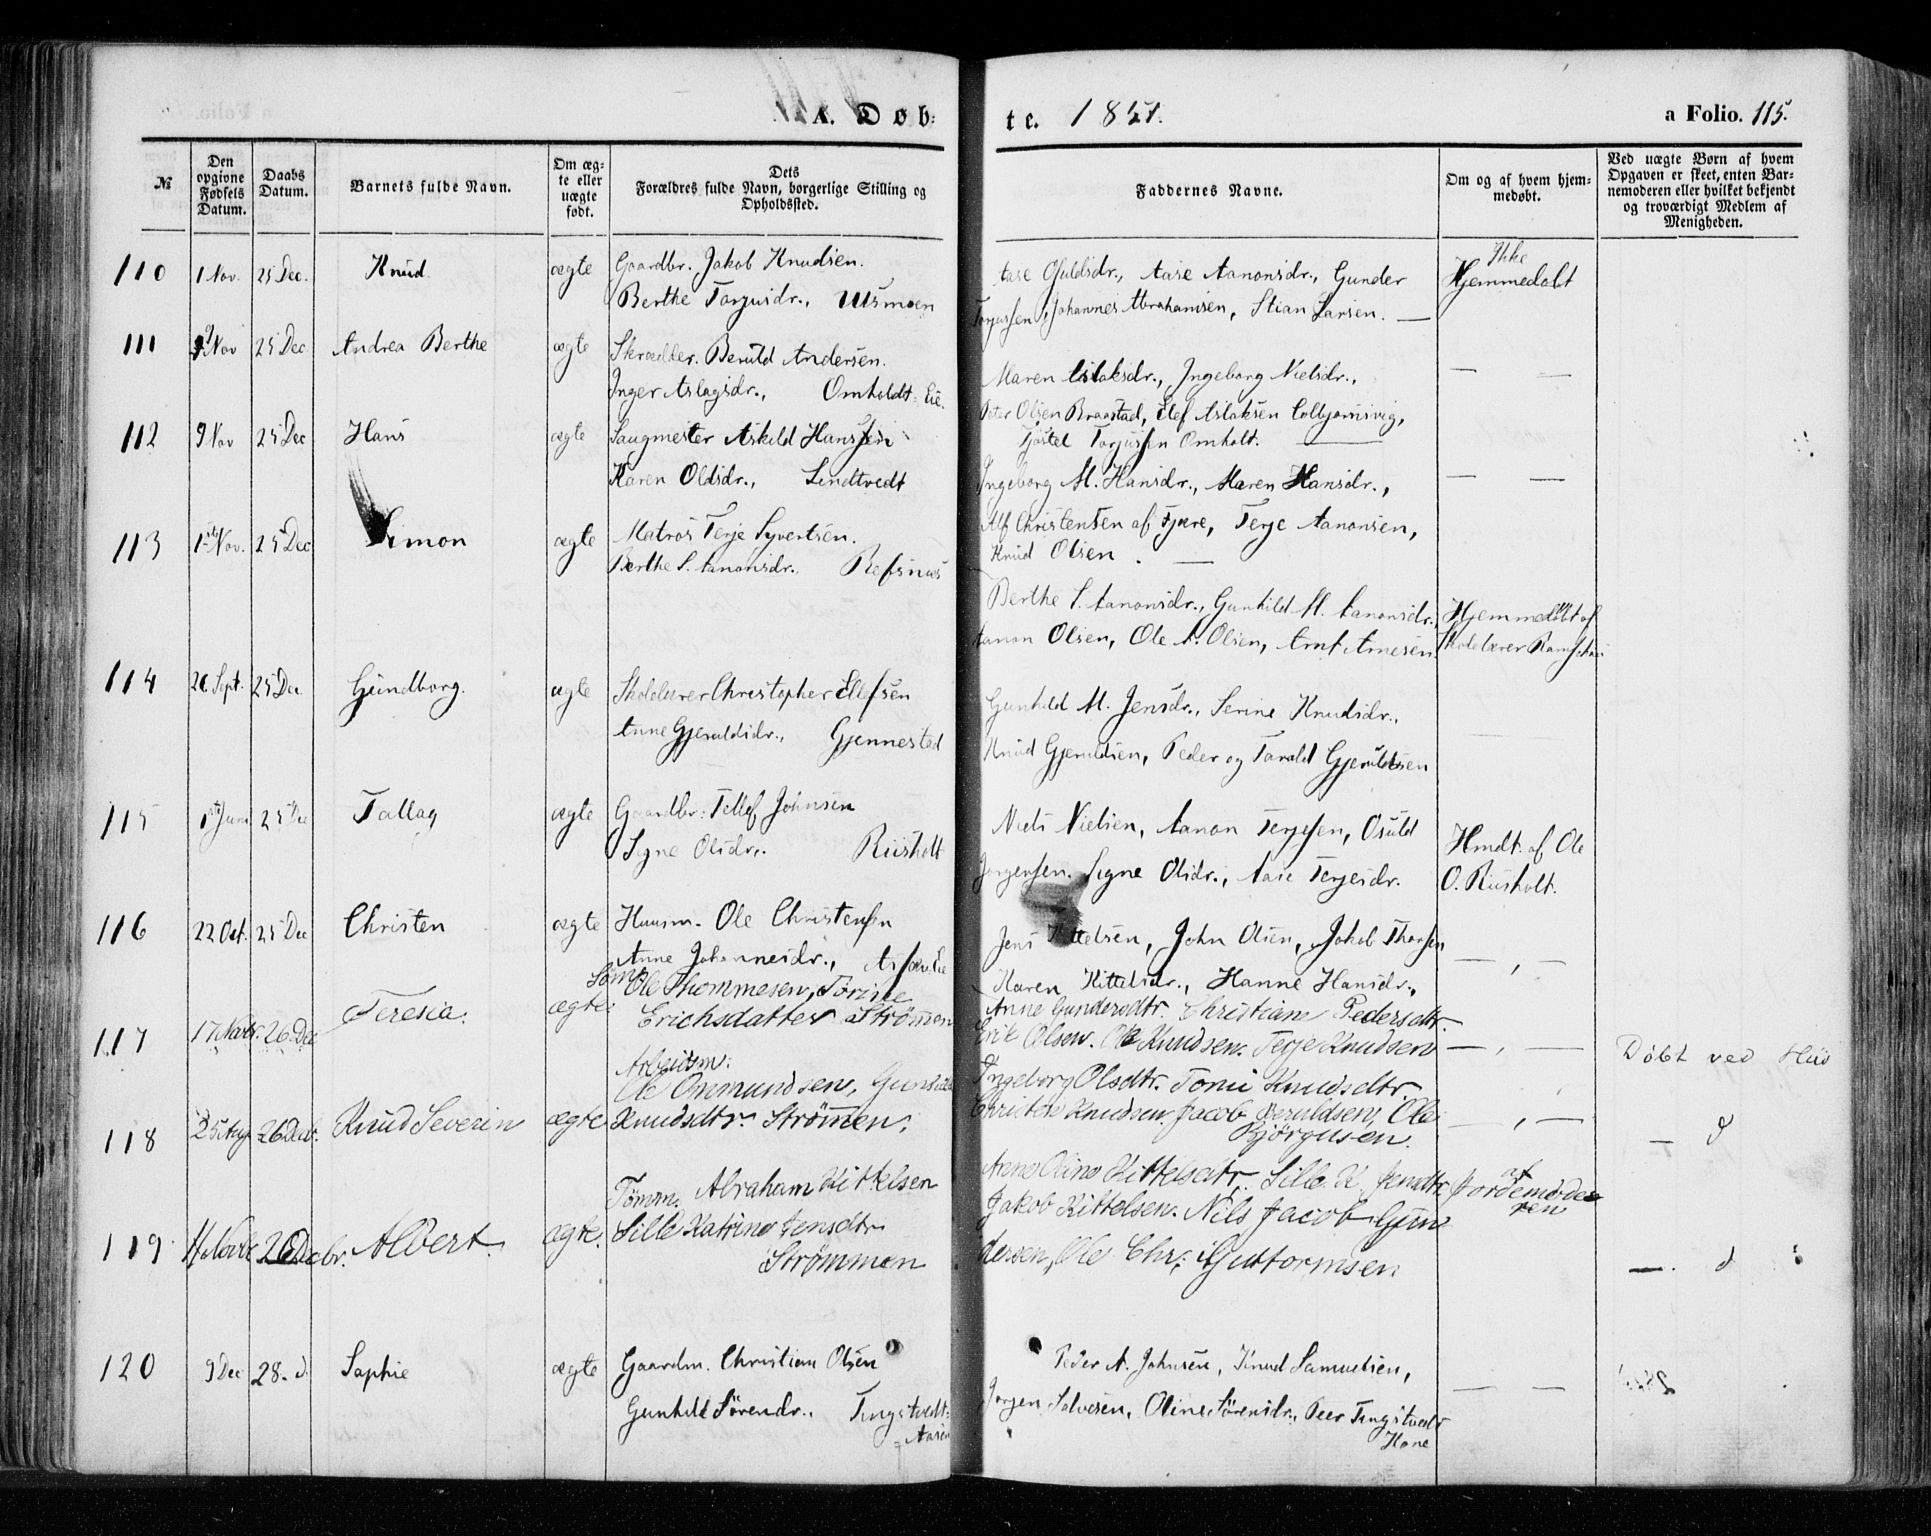 A. Døb-
te. 1851.
a Folio. 115.
№
Den opgivne Fødsels Datum.
Daabs Datum.
Barnets fulde Navn.
Om æg-te eller uægte født.
Dets Forældres fulde Navn, borgerlige Stilling og Opholdssted.
Faddernes Navne.
Om og af hvem hjem-medøbt.
Ved uægte Børn af hvem Opgaven er skeet, enten Bar-nemoderen eller hvilket bekjendt og troværdigt Medlem af Menigheden.
110 1 Nov. 25 Dec. Knud. ægte Gaardbr. Jakob Knudsen.
Berthe Torjusdr.,
Aase Osuldsdr., Aase Aanonsdr., Gunder
Torjussen, Johannes Abrahamsen, Stian Larsen. —
Ikke
Hjemmedøbt
111 9 Nov 25 Dec Andrea Berthe ægte Skrædder. Beruld Andersen.
Inger Aslagsdr., Omholdt-Eie.
Maren Aslaksdr., Ingeborg Nielsdr., — —
Peter Olsen Braastad, Elef Aslaksen
Torjussen Omholt. —
112 9 Nov 25 Dec Hans ægte Saugmester Askild Hanssen
Karen Olsdr., Lindtvedt
Ingeborg M. Hansdr., Maren Hansdr., — —
Alf Christensen af Fjære, Terje Aanonsen,
Knud Olsen. —
113 1ste Nov. 25 Dec Simon ægte Matros Terje Syvertsen.
Berthe S. Aanonsdr. Refsnæs
Berthe S. Aanonsdr., Gunhild M. Aanonsdr., Hjemmedøbt af
Aanon Olsen, Ole A. Olsen, Arnt Arnesen. Skolelærer
114 Sept. 25 Dec Gundborg. ægte Skolelærer Christopher Ellefsen
Anne Gjeruldsdr., Gjennestad
Gunhild M. Jensdr., Serine Knudsdr.,
Knud Gjeruldsen, Peder og Tarald Gjeruldsen
115 1ste Juni 25 Dec Tallag ægte Gaardbr. Tellef Johnsen
Signe Olsdr. Riisholt
Niels Nielsen, Aanon Terjesen, Osuld
Jørgensen. Signe Olsdr., Aase Terjesdr.
Hmdt. af Ole
O. Riisholt.
116 22 Oct. 25 Dec Christen ægte Huusm. Ole Christensen
Anne Johannesdr.,
Jens Kittelsen, John Olsen, Jakob
Karen Kittelsdr., Hanne Hansdr., — , —
117 17 Novbr. 26 Dec Teresia. ægte
Ole Thommesen, Tørine
Erichsdatter Strømmen
Anne Gundersdtr. Christiane Pedersdtr.
Erik Olsen. Ole Knudsen. Terje Knudsen — , — Döbt ved Huus
Arbeidsm:
Ole Ommundsen, Gunhild
118 25 Aug 26 Decbr. Knud Severin ægte Knudsdtr. Strömmen.
Ingeborg Olsdtr. Tomi Knudsdtr
Christen Knudsen. Jacob Beruldsen, Ole
Björgusen. — , — — d
119 Novbr 26 Decbr. Albert. ægte.
Tömm. Abraham Kittelsen
Sille Katrine Jensdtr
Strömmen
Anne Oline Kittelsdtr. Sille K. Jensdtr.
Jakob Kittelsen. Nils Jacob Gun
dersen, Ole Chr. Guttormsen
af
Jordemoder
ren
— d
120 9 Dec 28. d. Sophie ægte Gaardm. Christian Olsen
Gunhild Sørensdr., Tingstvedt-
Aasen
Peder A. Johnsen, Knud Samuelsen,
Jørgen Salvesen, Oline Sørensdr., Peer Tingstvedt
— —